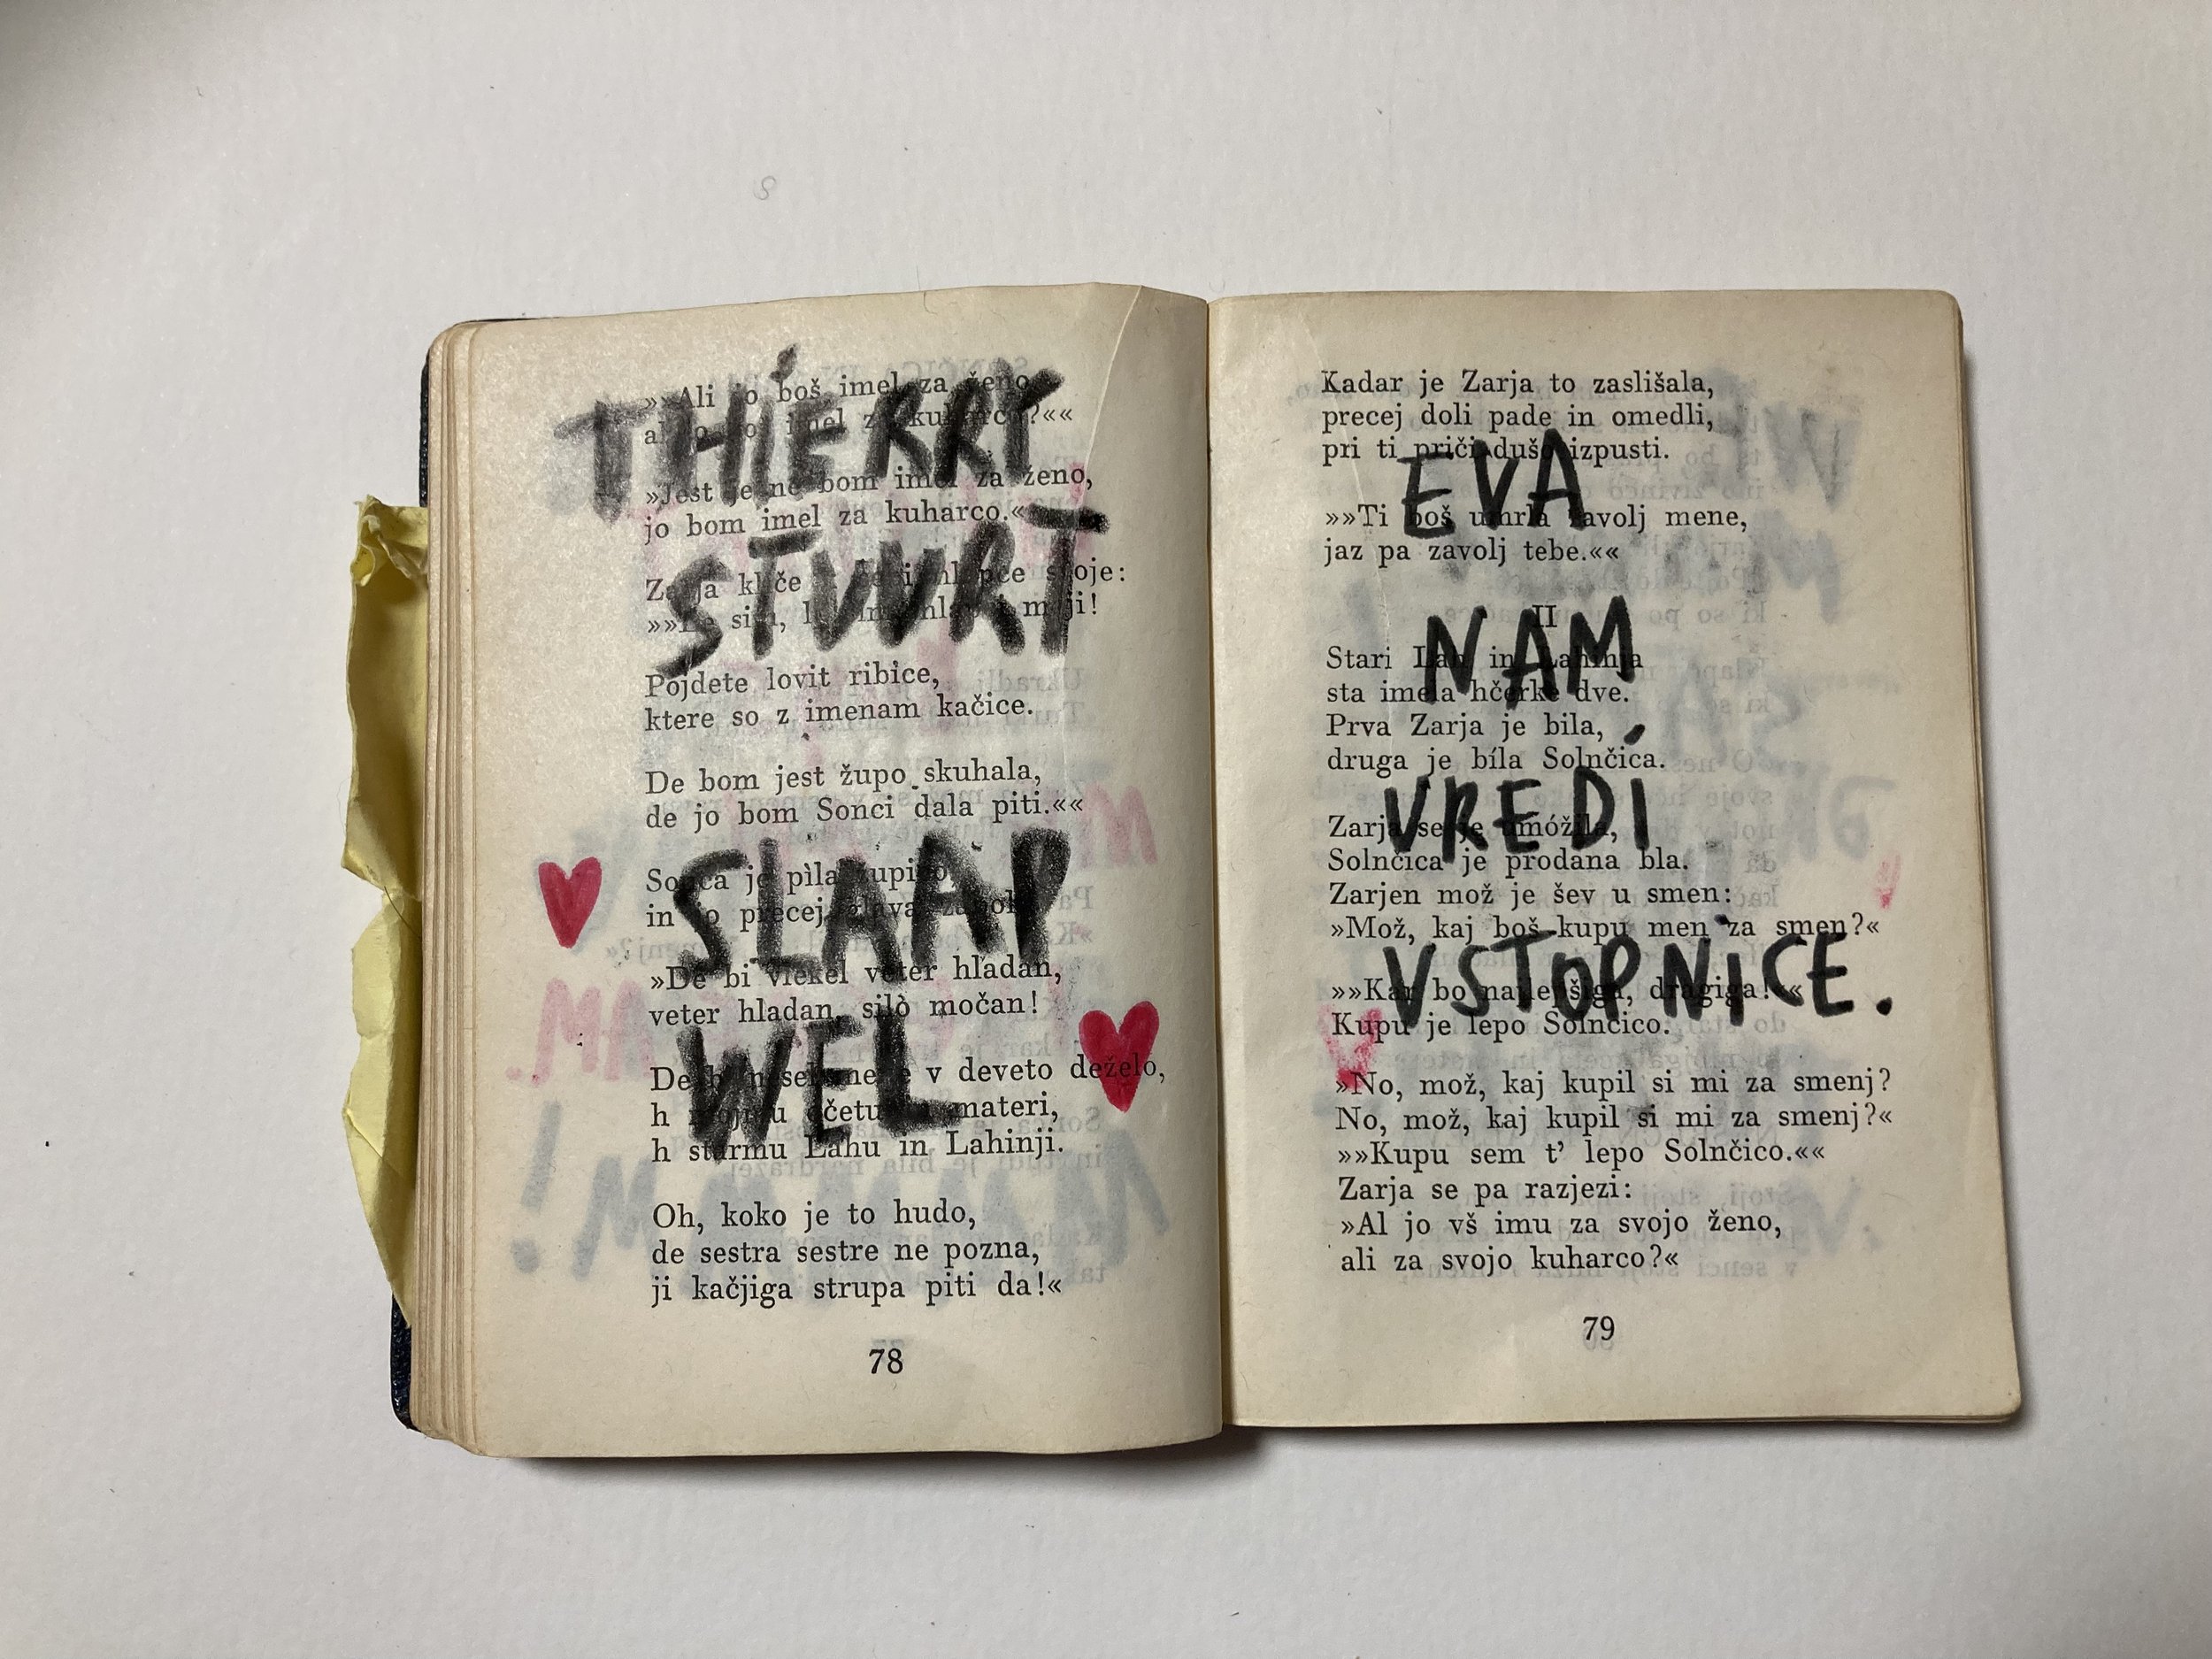 »»Ali jo boš imel za ženo
THIERRY
imel kuharco?««
»Jest je ne bom imel za ženo,
jo bom imel za kuharco.«
STUURT
Zarja kliče
moji!
Pojdete lovit ribice,
ktere so z imenam kačice.
De bom jest župo skuhala,
de jo bom Sonci dala piti.««
SLAAP
Sonca je pila župico
in jo precej glava
»De bi vlekel veter hladan,
veter hladan, silò močan!
WEL
v deveto deželo,
h očetu materi,
h starmu Lahu in Lahinji.
Oh, koko je to hudo,
de sestra sestre ne pozna,
ji kačjiga strupa piti da!«
78
Kadar je Zarja to zaslišala,
precej doli pade in omedli,
pri ti priči dušo izpusti.
EVA
»»Ti boš umrla zavolj mene,
jaz pa zavolj tebe.««
II
NAM
Stari Lah in Lahinja
sta imela hčerke dve.
Prva Zarja je bila,
druga je bíla Solnčica.
VREDI
Zarja se je omóžila,
Solnčica je prodana bla.
Zarjen mož je šev u smen:
»Mož, kaj boš kupu men za smen?«
VSTOPNICE.
»»Kar bo najlepšiga, dragiga!««
Kupu je lepo Solnčico.
»No, mož, kaj kupil si mi za smenj?
No, mož, kaj kupil si mi za smenj?«
»»Kupu sem t’ lepo Solnčico.««
Zarja se pa razjezi:
»Al jo vš imu za svojo ženo,
ali za svojo kuharco?«
79